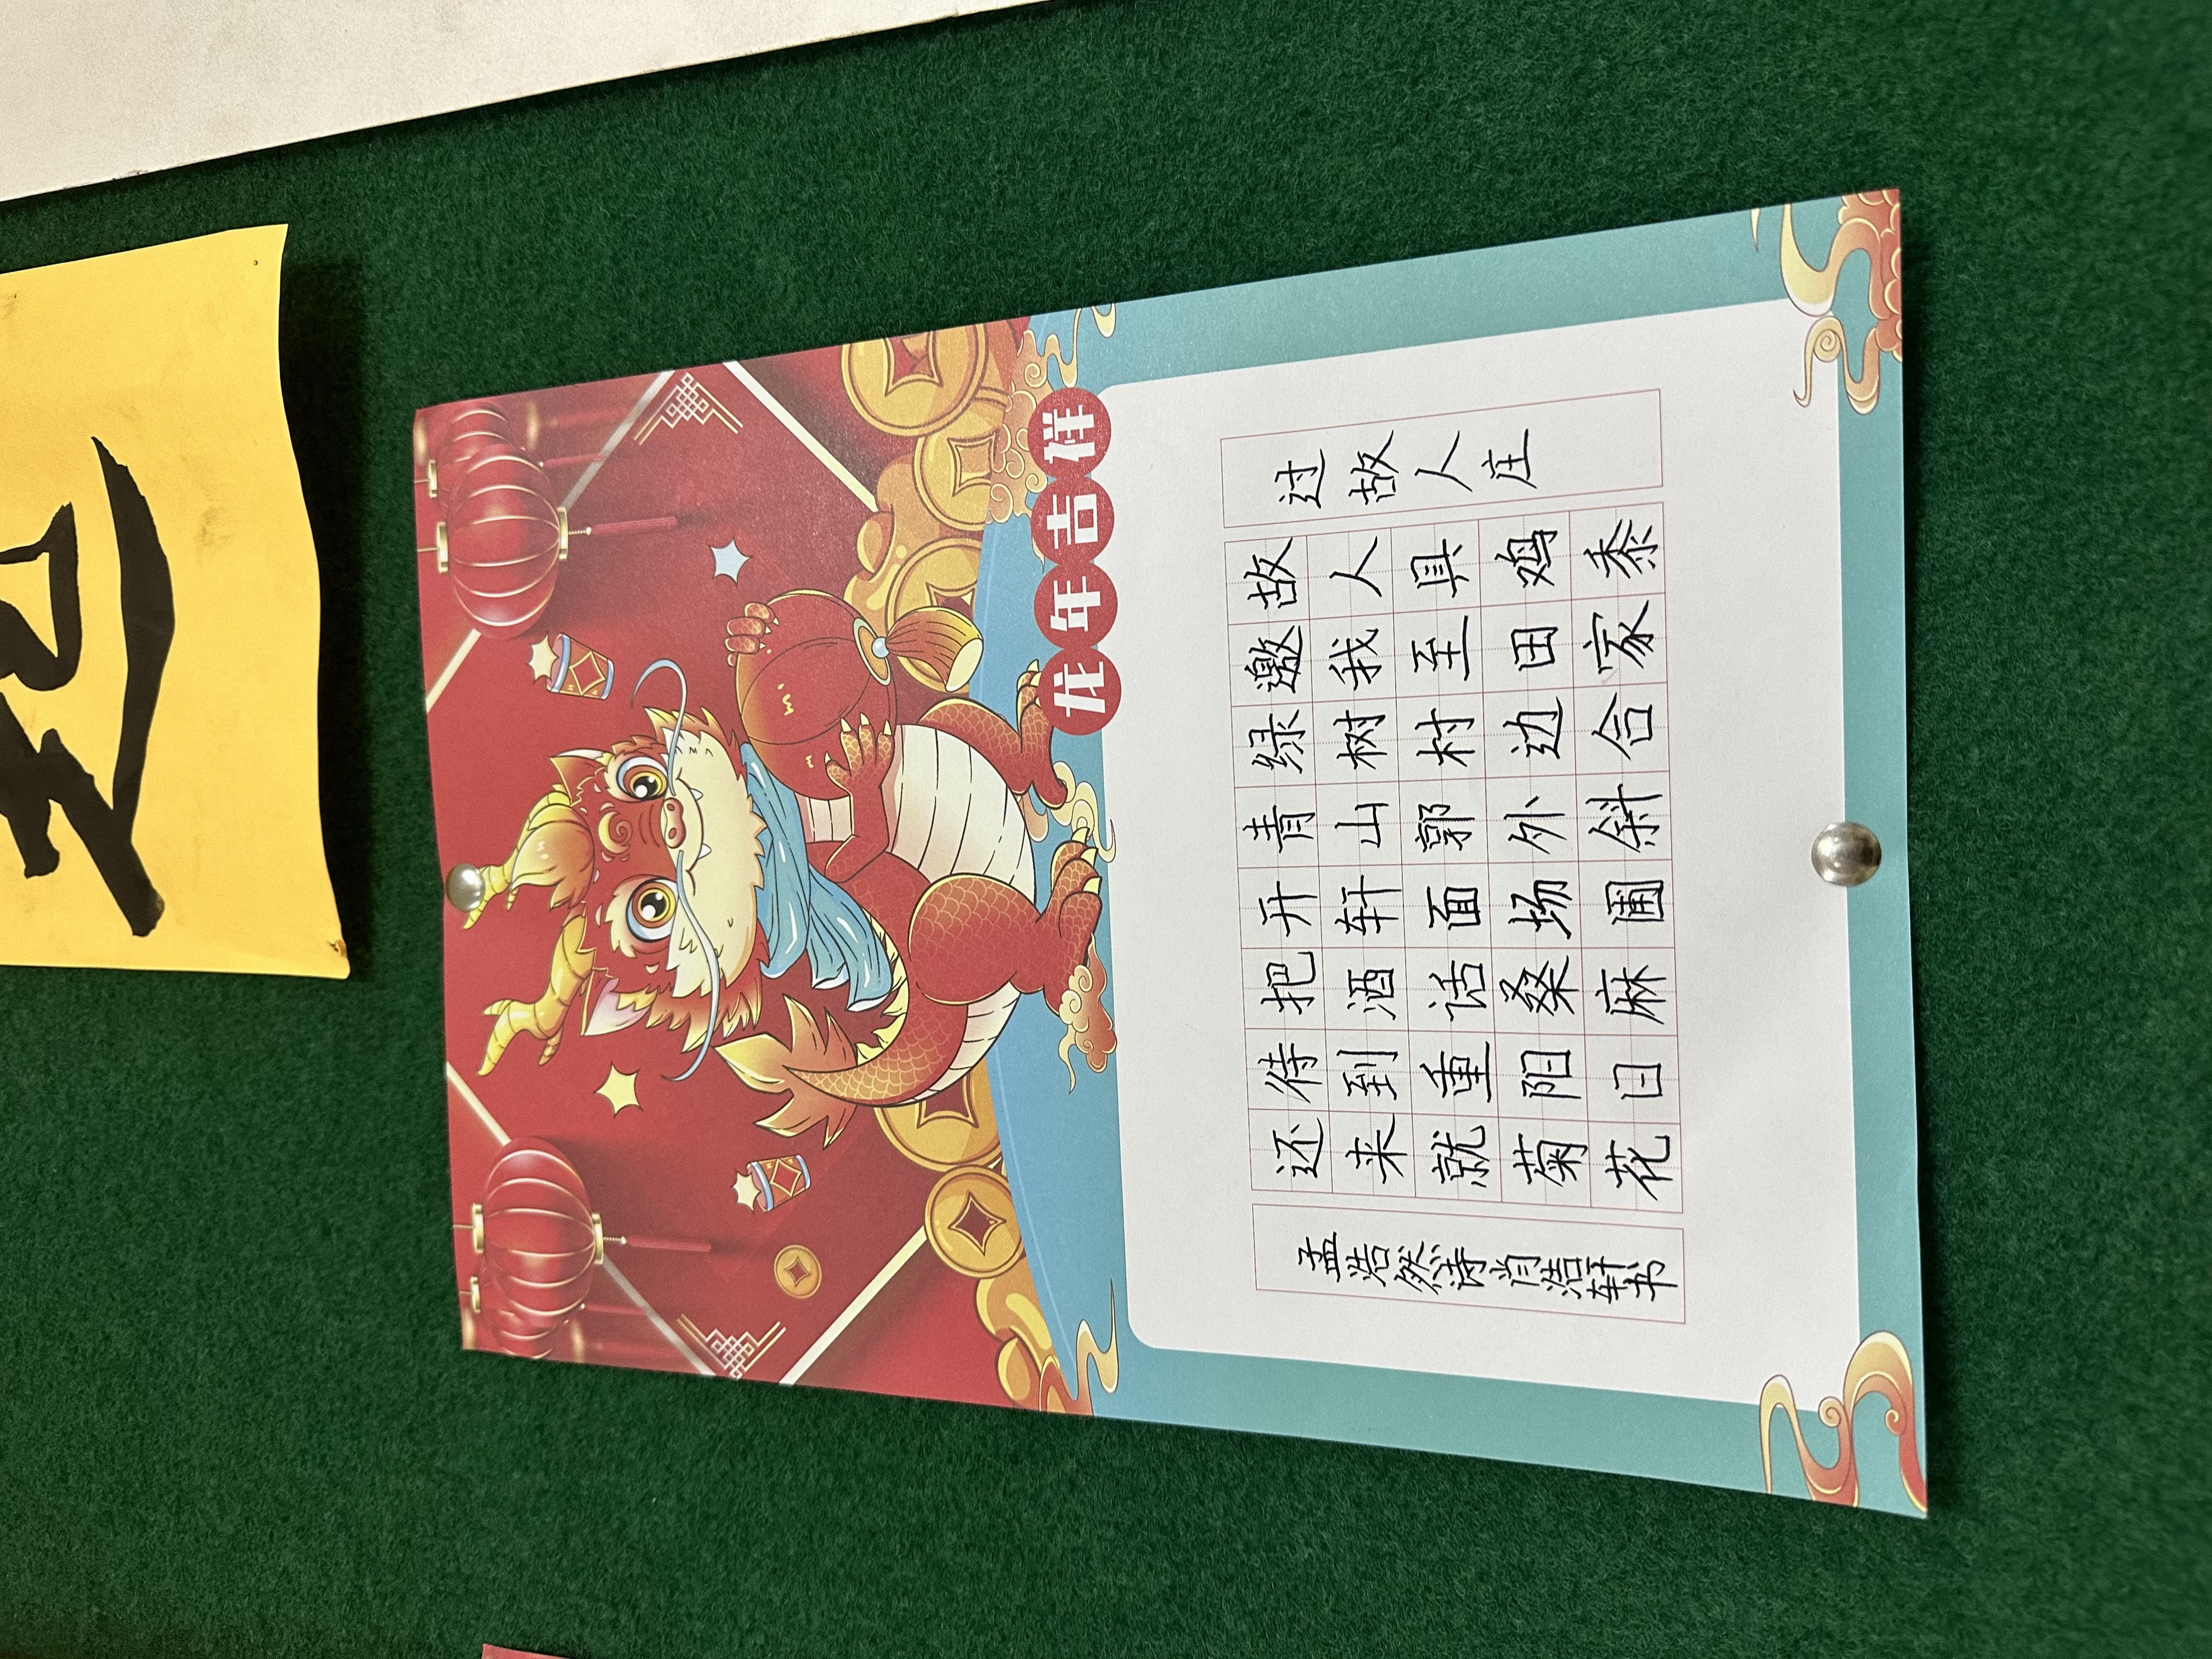 龙年吉祥
过故人庄
故人具鸡黍
邀我至田家
绿树村边合
青山郭外斜
开轩面场圃
把酒话桑麻
待到重阳日
还来就菊花
孟浩然诗肖浩轩书